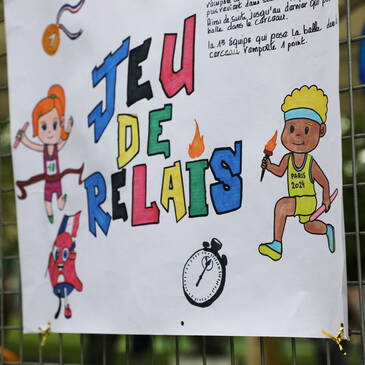 puis revient dans son
Ainsi de suite jusqu'au dernier qui po
balle dans le cerceau.
la 1è Équipe qui pose la balle dans
cerceau remporte 1 point.
JEU
DE
RELAIS
PARIS
2024